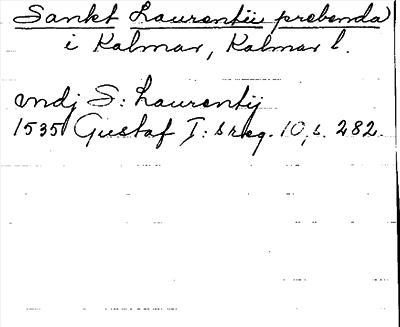 Sankt Laurentii prebenda
i Kalmar, Kalmar l.
vndj S: Laurentij
1535 Gustaf I: s reg. 10, s. 282.